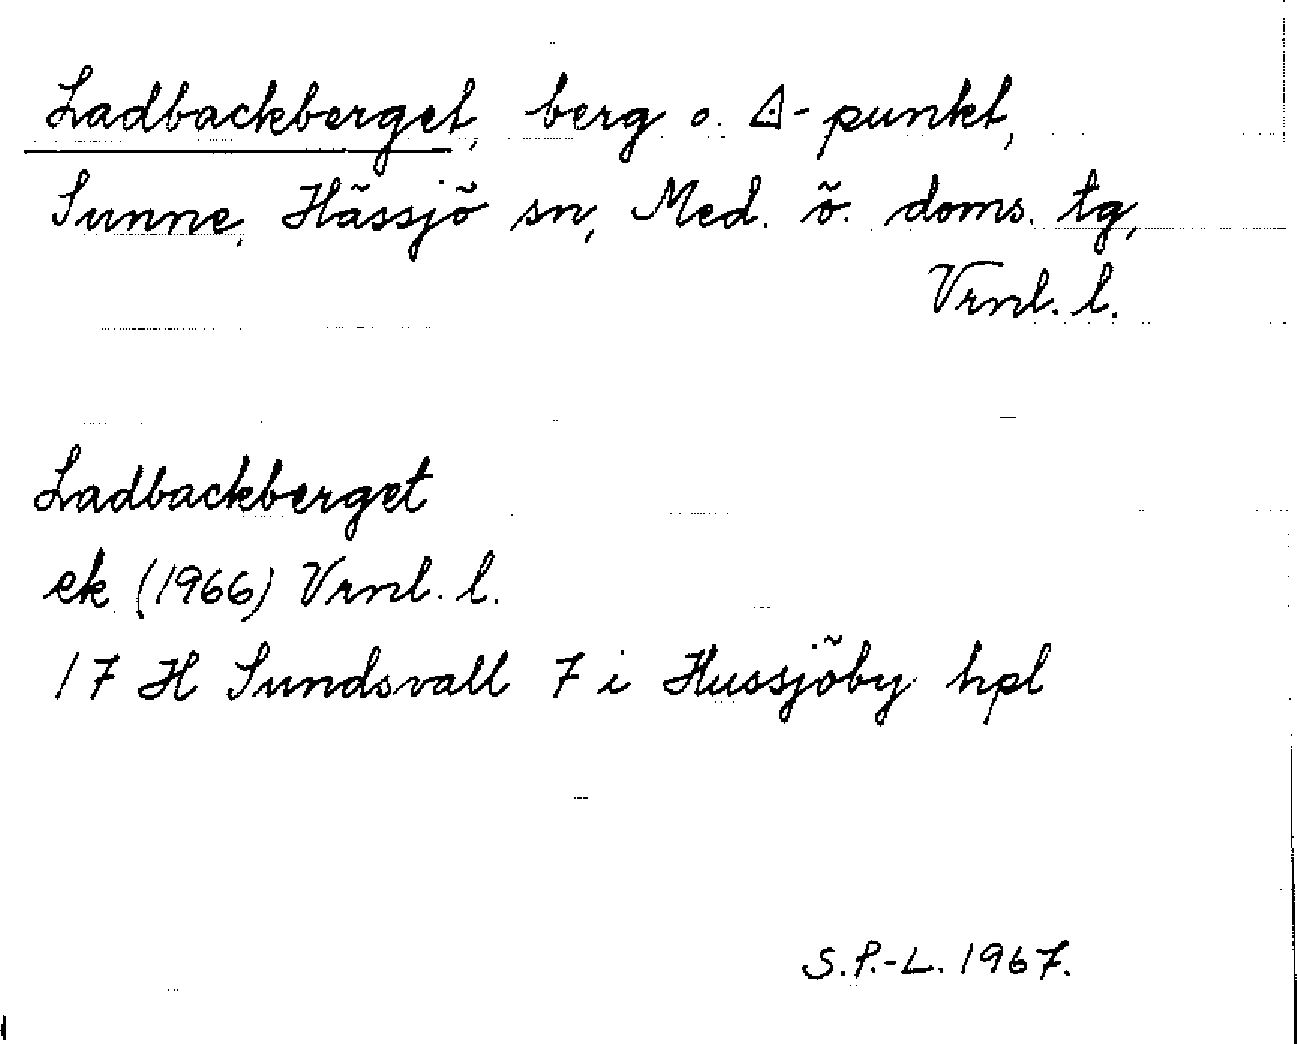 Ladbackberget, berg o. △-punkt,
Sunne, Hässjö sn, Med. ö. doms. tg,
Vrnl. l.
Ladbackberget
ek (1966) Vrnl. l.
17 H Sundsvall 7 i Hussjöby hpl
S.P.-L. 1967.